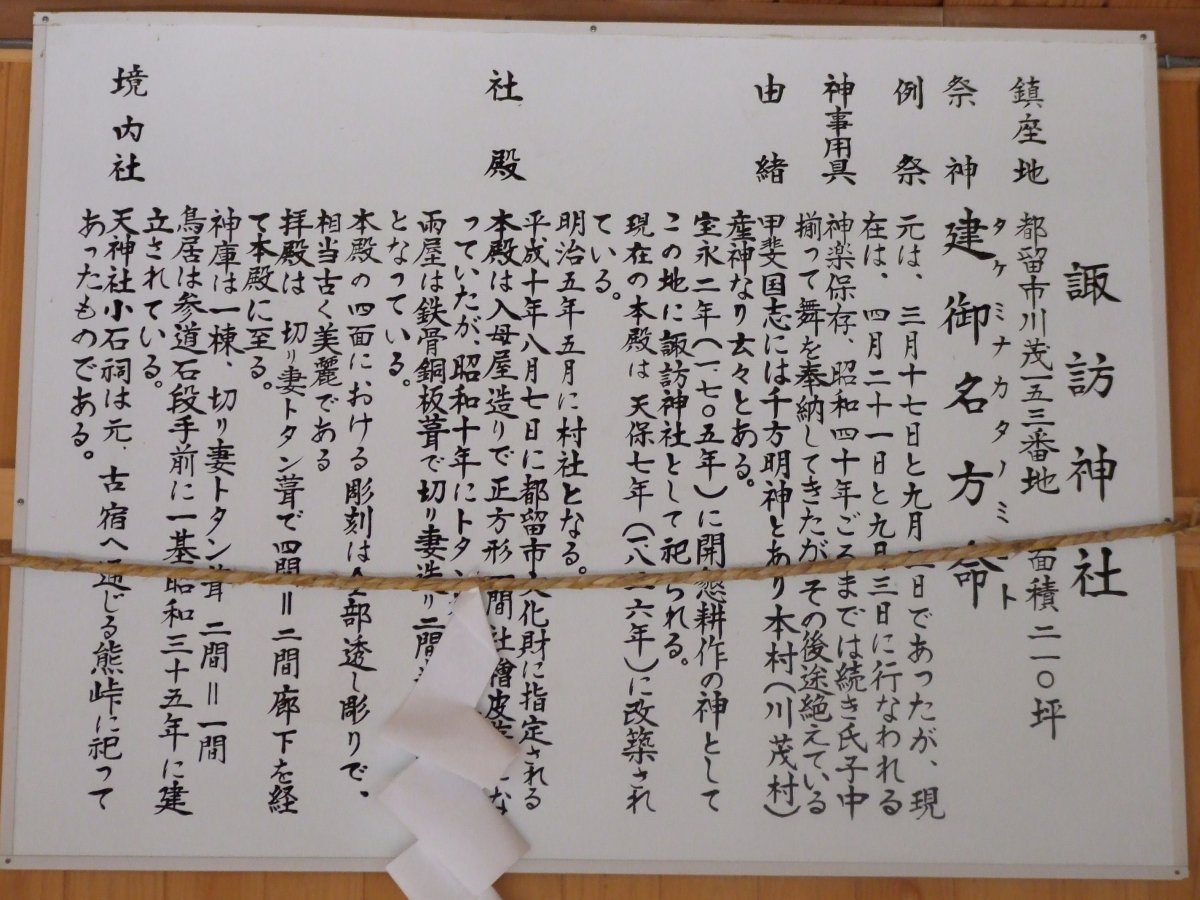 諏訪神社
鎮座地 都留市川茂一五三番地 面積 二一〇坪
タケミナカタノミ ト
祭神 建御名方命
例祭 元は、三月十七日と九月 日であったが、現
在は、四月二十一日と九月 三日に行なわれる
神事用具 神楽保存、昭和四十年ごろまでは続き氏子中
揃って舞を奉納してきたが、その後途絶えている
由緒 甲斐国志には千方明神とあり本村(川茂村)
産神なり玄々とある。
宝永二年(一、七〇五年)に開墾耕作の神として
この地に諏訪神社として祀られる。
現在の本殿は天保七年(一八 六年)に改築され
ている。
明治五年五月に村社となる。
社殿 平成十年八月七日に都留市文化財に指定される
本殿は入母屋造りで正方形一間社 皮 にな
っていたが、昭和十年にトタン
雨屋は鉄骨銅板葺で切り妻造り二間
となっている。
本殿の四面における彫刻は全部透し彫りで、
相当古く美麗である
拝殿は 切り妻トタン葺で四間=二間廊下を経
て本殿に至る。
神庫は一棟、切り妻トタン葺 二間=一間
鳥居は参道石段手前に一基昭和三十五年に建
立されている。
境内社 天神社小石祠は元、古宿へ通じる熊峠に祀って
あったものである。